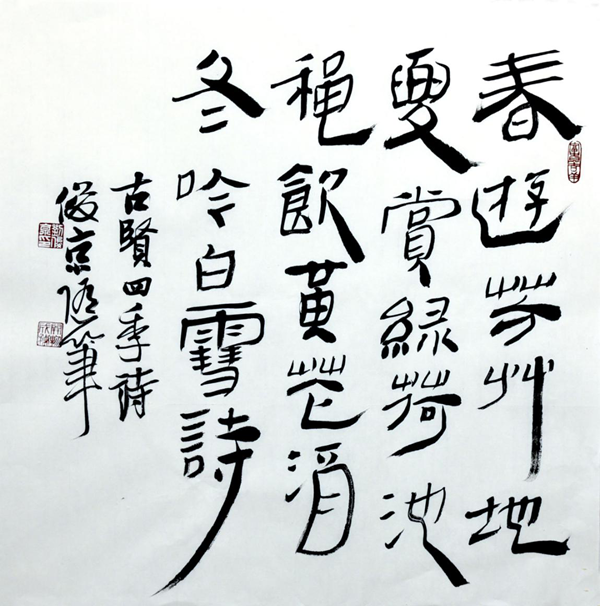 春遊芳艸地
夏賞綠荷池
穐飲黃花酒
冬吟白雪詩
古賢四季詩
俊京随筆